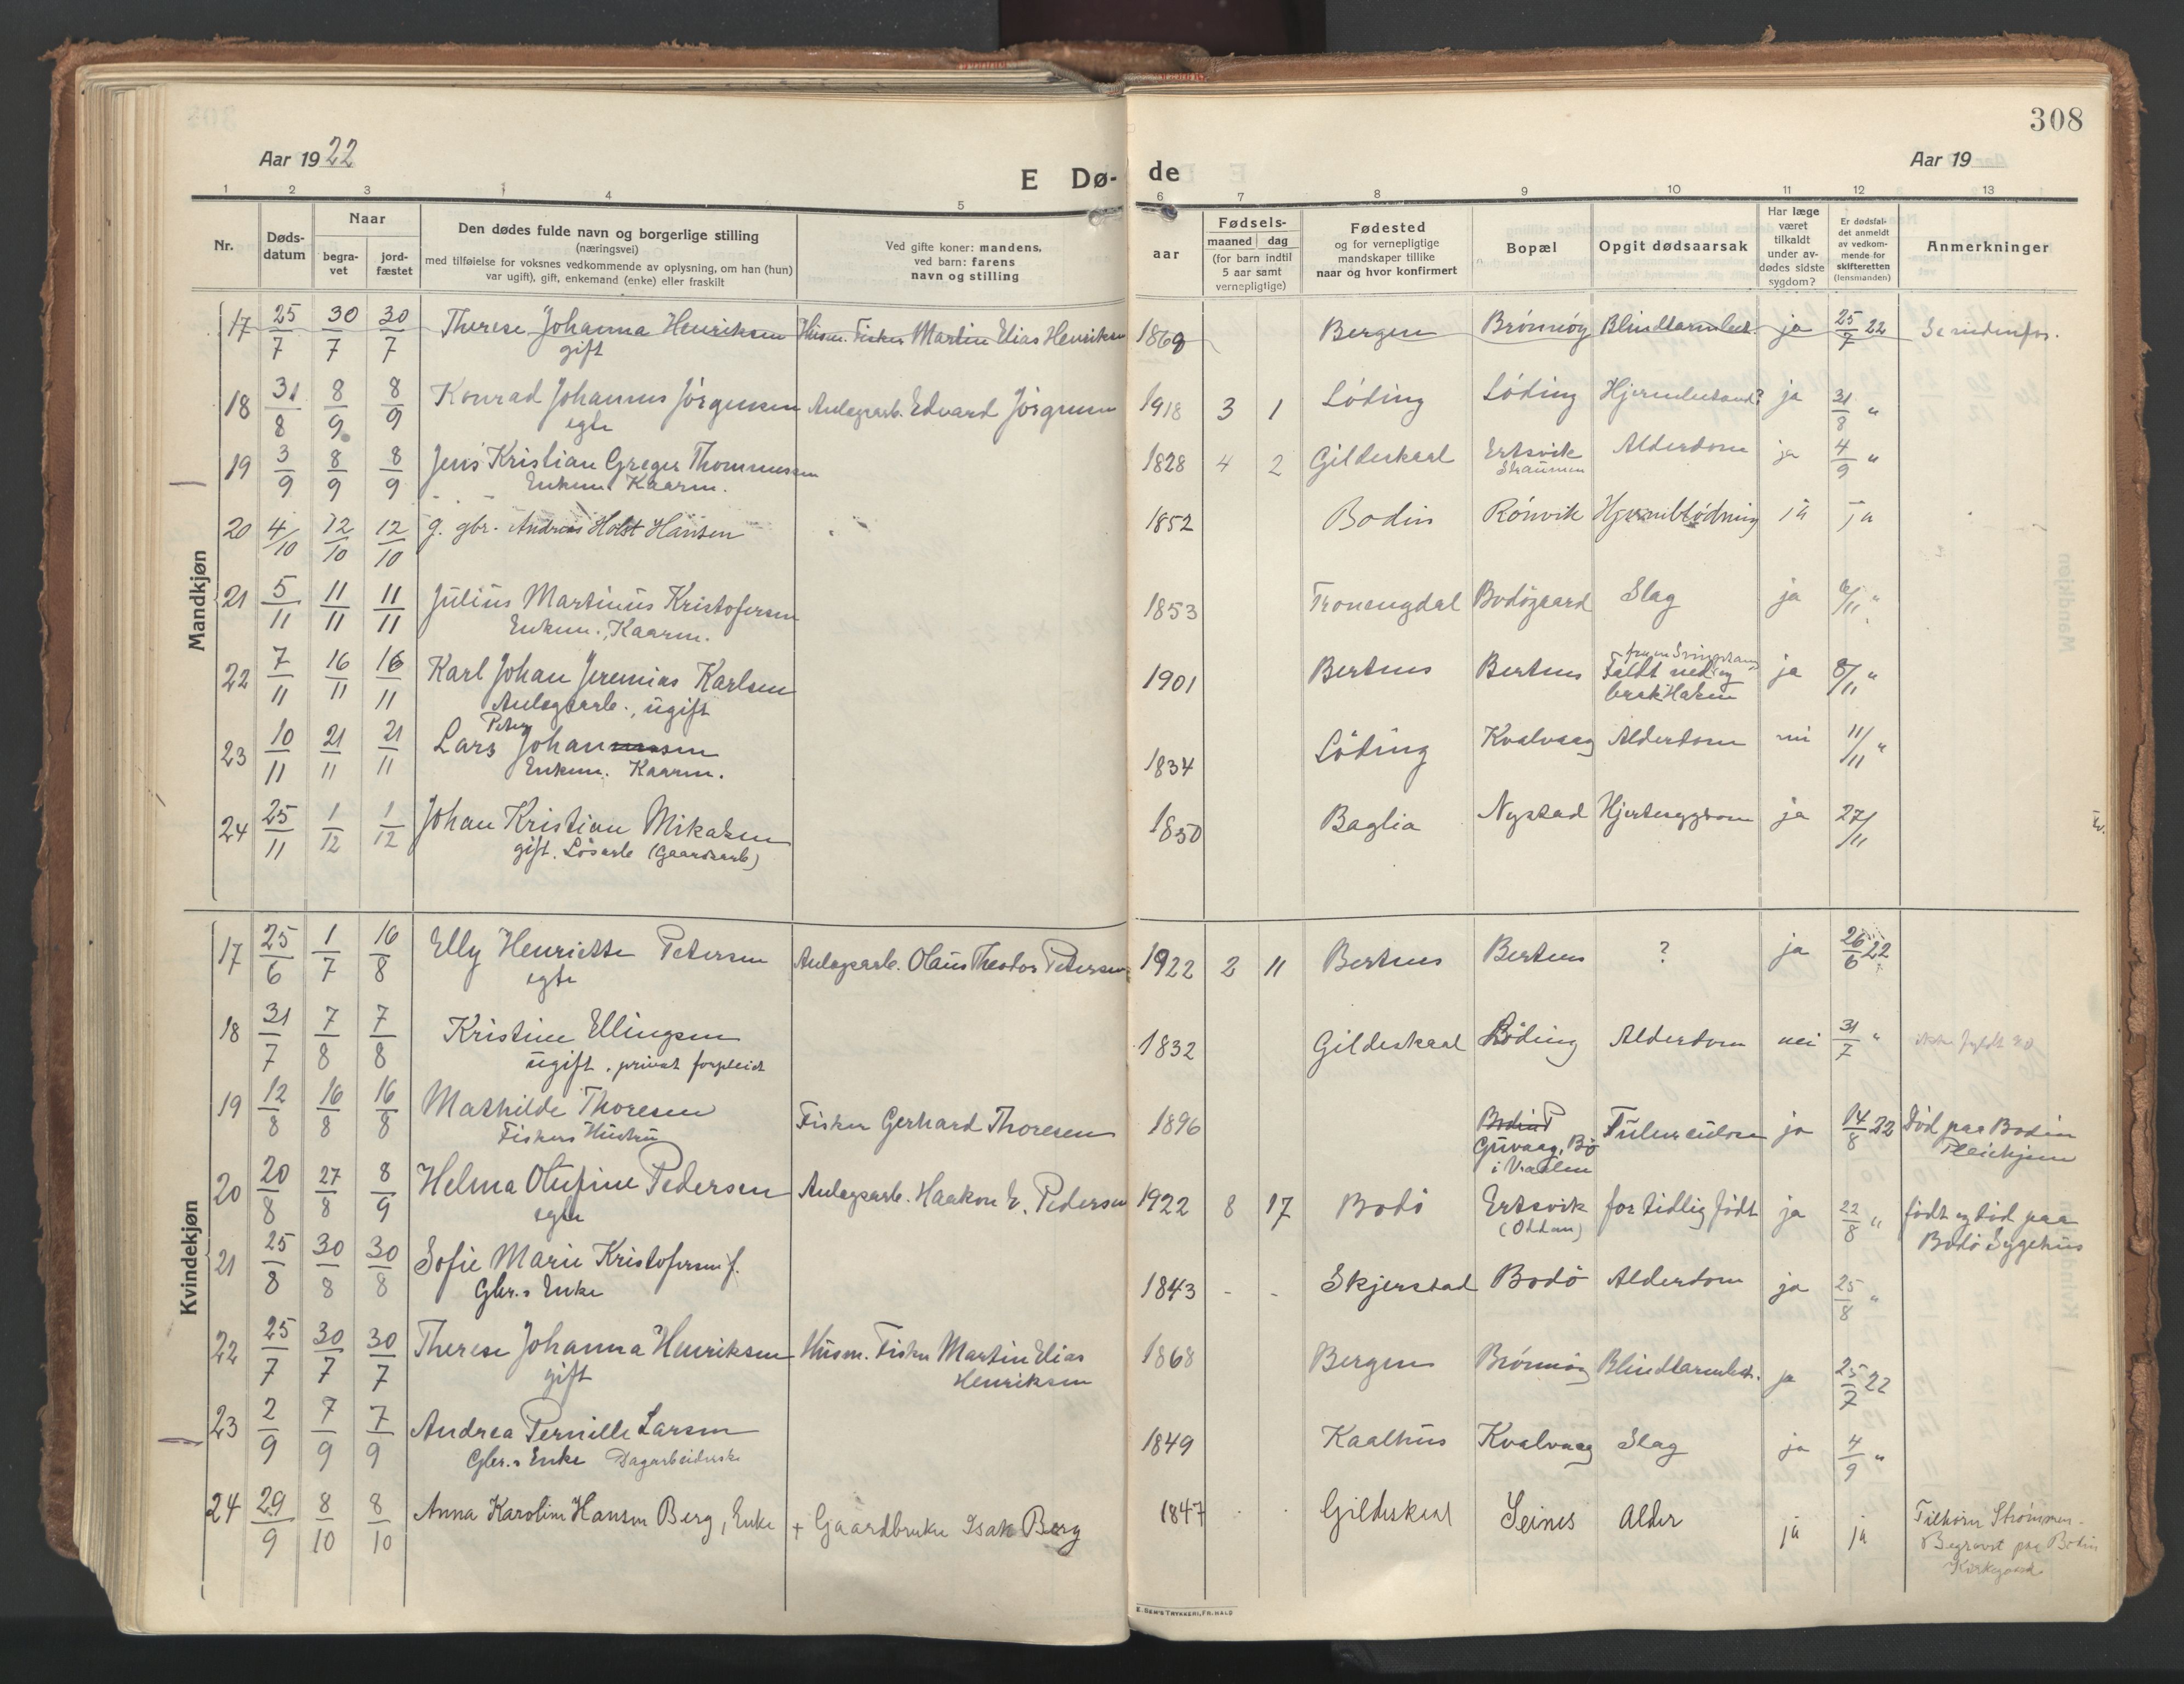 308
Aar 1922
E Dø-
de
Aar 19
1 2 3 4 5 6 7 8 9 10 11 12 13
Nr.
Døds-
datum
Naar
begra-
vet
jord-
fæstet
Den dødes fulde navn og borgerlige stilling
(næringsvei)
med tilføielse for voksnes vedkommende av oplysning, om han (hun)
var ugift), gift, enkemand (enke) eller fraskilt
Ved gifte koner: mandens,
ved barn: farens
navn og stilling
Fødsels-
aar
maaned dag
(for barn indtil
5 aar samt
vernepligtige)
Fødested
og for vernepligtige
mandskaper tillike
naar og hvor konfirmert
Bopæl
Opgit dødsaarsak
Har læge
været
tilkaldt
under av-
dødes sidste
sygdom?
Er dødsfal-
det anmeldt
av vedkom-
mende for
skifteretten
(lensmanden)
Anmerkninger
Mandkjøn
17 25/7 30/7 30/7 Therese Johanna Henriksen Husm. Fisker Martin Elias Henriksen 1868 Bergen Brönnöy Blindtarmbet. ja 25/7 22 Se nedenfor.
gift
18 31/8 8/9 8/9 Konrad Johannes Jörgensen Anlegsarb. Edvard Jörgensen 1918 3 1 Löding Löding ja 31/8 "
egte
19 3/9 8/9 8/9 Jens Kristian Greger Thommesen 1828 4 2 Gildeskaal Ertsvik Alderdom ja 4/9 "
Enkem. Kaarm. Straumen
20 4/10 12/10 12/10 g. gbr. Andreas Holst Hansen 1852 Bodin Rönvik Hjerneblödning ja ja
21 5/11 11/11 11/11 Julius Martinus Kristofersen 1853 Bodögaard Slag ja 6/11 "
Enkem., Kaarm.
22 7/11 16/11 16/11 Karl Johan Jeremias Karlsen 1901 Bertnes Bertnes Faldt ned og ja 8/11 "
Anlegsarb., ugift brak Halsen
23 10/11 21/11 21/11 Lars Peter Johannessen 1834 Löding Kvalvaag Alderdom nei 11/11 "
Enkem. Kaarm.
24 25/11 1/12 1/12 Johan Kristian Mikalsen 1850 Baglia Nystad Hjertesygdom ja 27/11
gift. Lösarb (Gaardsarb)
Kvindekjøn
17 25/6 1/7 16/8 Elly Henriette Petersen Anlegsarb. Olaus Theodor Petersen 1922 2 11 Bertnes Bertnes ? ja 26/6 22
egte
18 31/7 7/8 7/8 Kristine Ellingsen 1832 Gildeskaal Löding Alderdom nei 31/7 " ikke fyldt 90
ugift. privat forpleiet
19 12/8 16/8 16/8 Mathilde Thoresen Fisker Gerhard Thoresen 1896 Bodin Tuberculose ja 14/8 22 Död paa Bodin
Fiskers Hustru Guvaag, Bö Pleiehjem
i Vraalen
20 20/8 27/8 8/9 Helma Olufine Pedersen Anlegsarb. Haakon E. Pedersen 1922 8 17 Bodö Ertsvik for tidlig födt ja 22/8 " födt og död paa
egte (Oddan) Bodö Sygehus
21 25/8 30/8 30/8 Sofie Marie Kristofersen f. 1843 - - Skjerstad Bodö Alderdom ja 25/8 "
Gbr.s Enke
22 25/7 30/7 30/7 Therese Johanna Henriksen Husm. Fisker Martin Elias 1868 Bergen Brönnöy Blindtarmbet. ja 25/7 22
gift Henriksen
23 2/9 7/9 7/9 Andrea Pernille Larsen 1849 Kaalhus Kvalvaag Slag ja 4/9 "
Gbr.s Enke Dagarbeiderske
24 29/9 8/10 8/10 Anna Karoline Hansen Berg, Enke + Gaardbruker Isak Berg 1847 Gildeskaal Seines Alder ja ja Tilhörer Strömmen.
Begravet paa Bodin
Kirkegaard
E. SEM'S TRYKKERI, FR.HALD